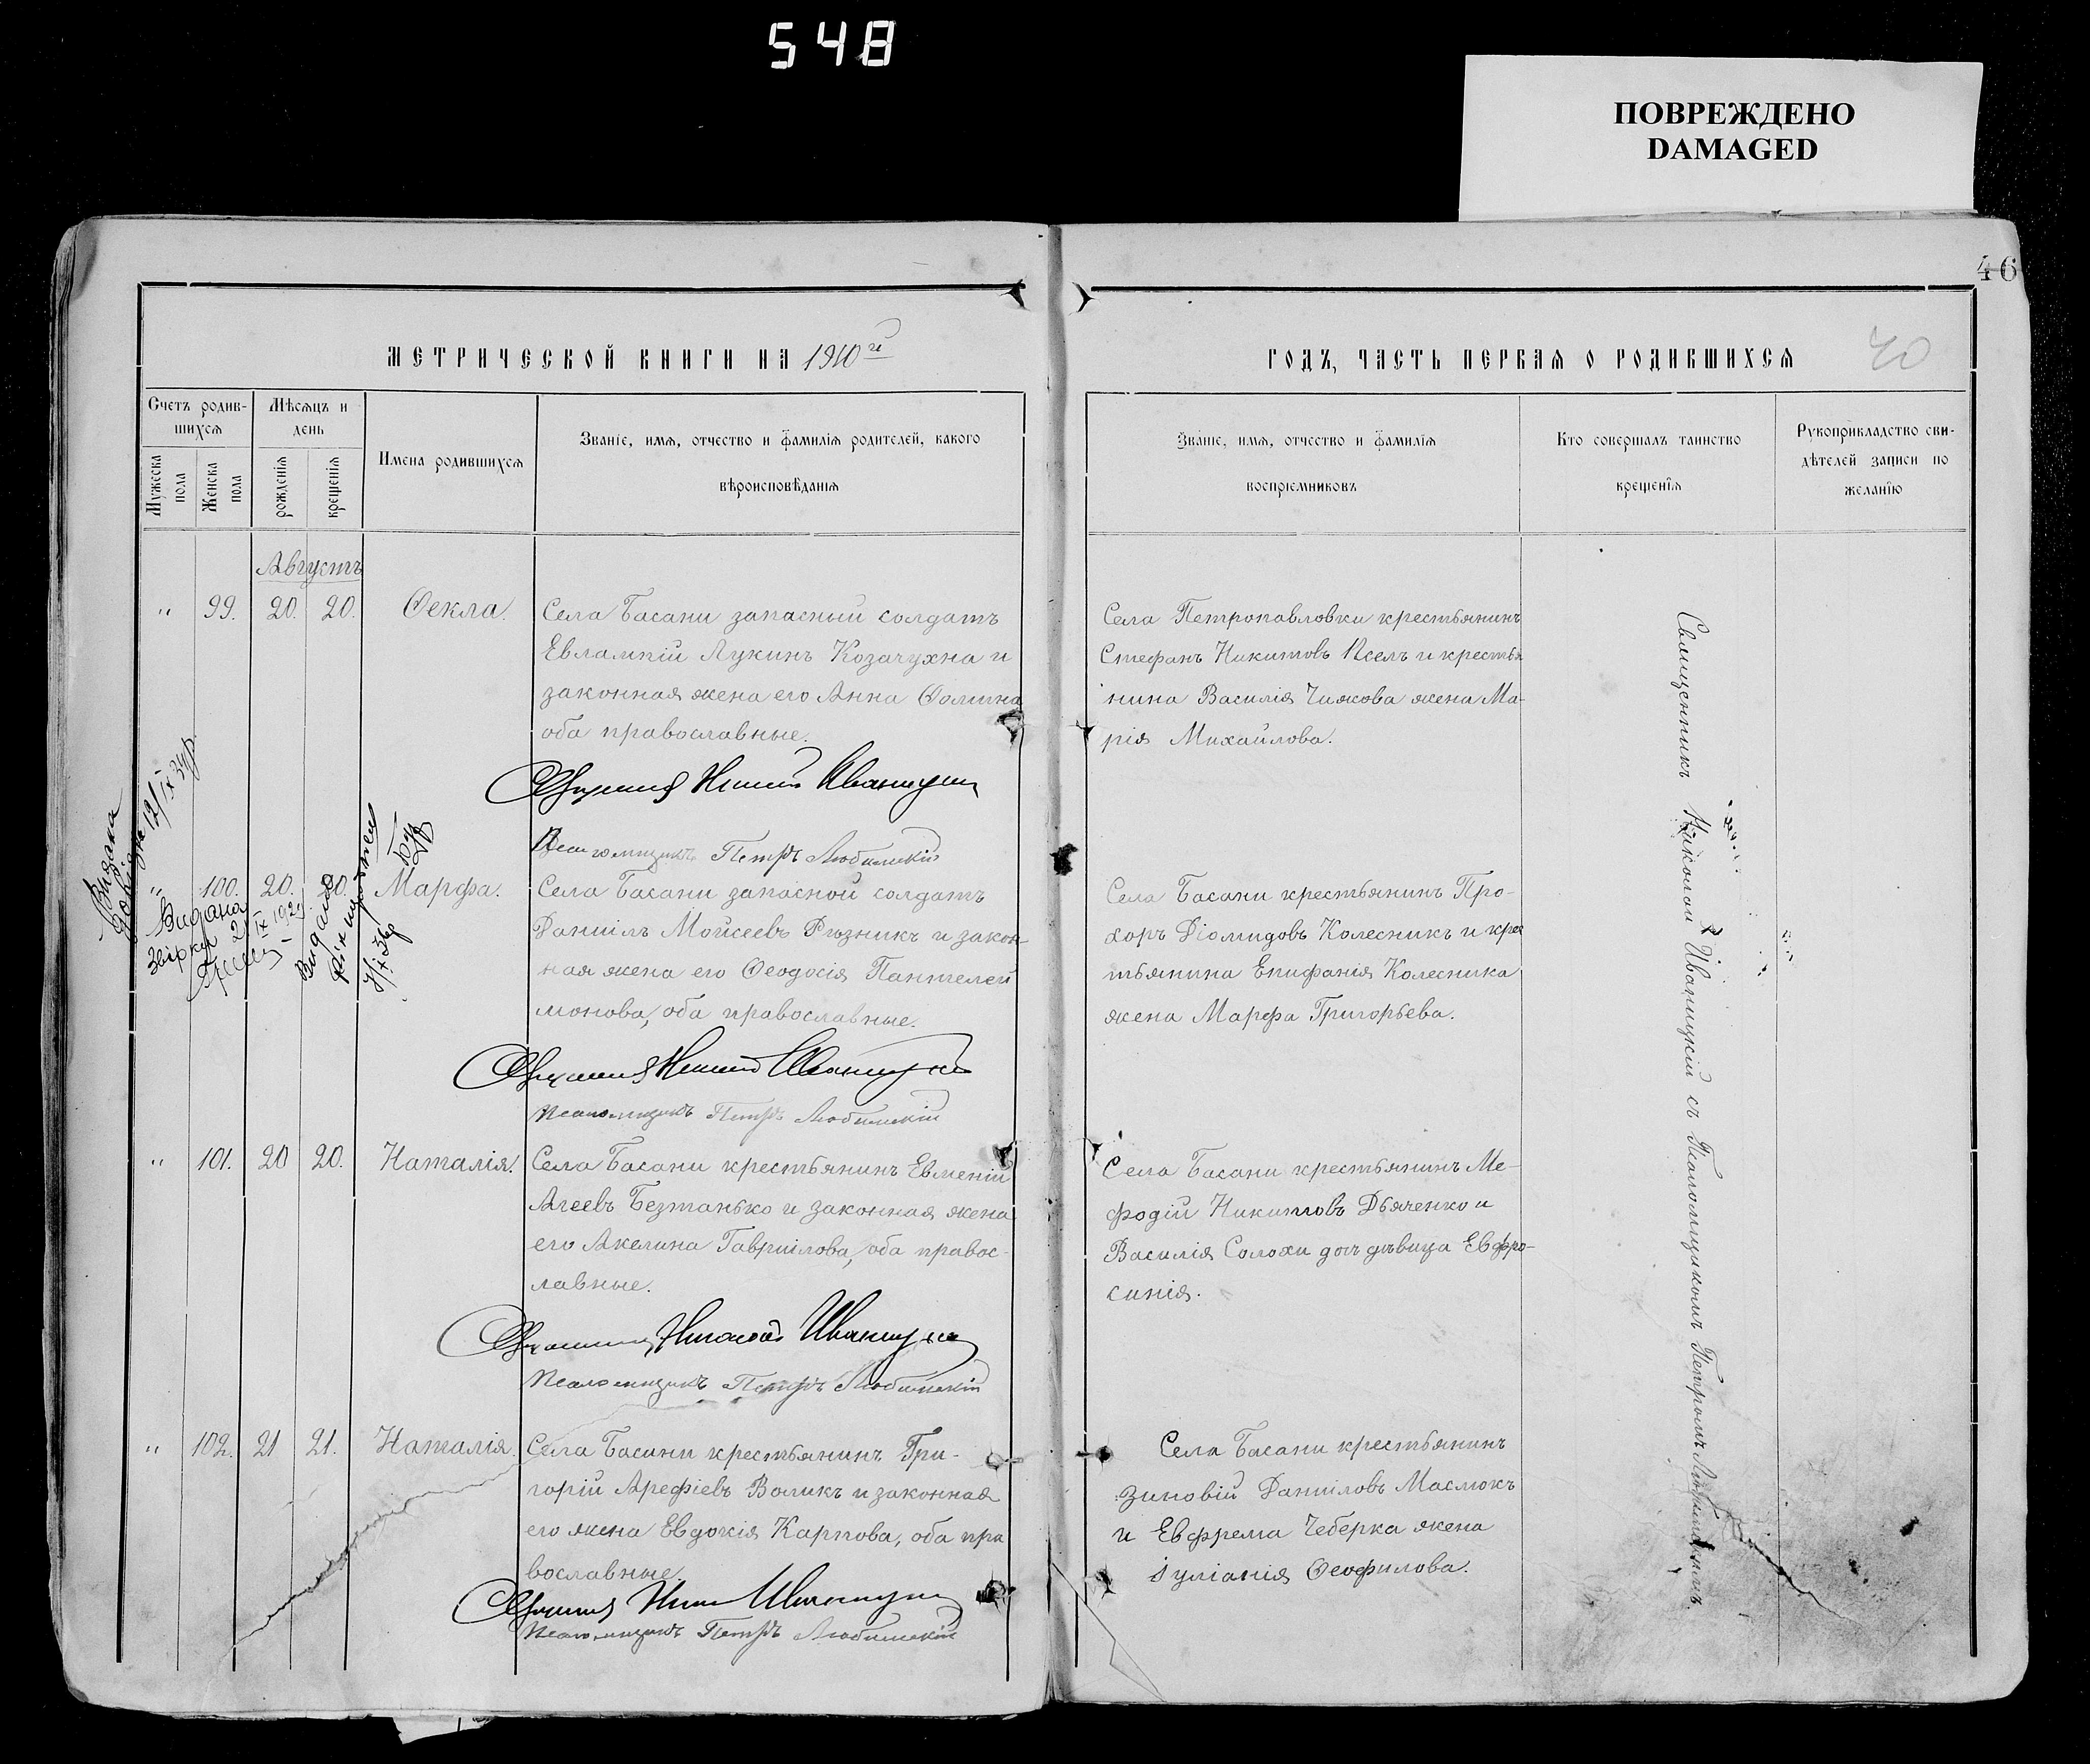 548
ПОВРЕЖДЕНО
DAMAGED
46
40
МЕТРИЧЕСКОЙ КНИГИ НА 1910й
ГОДЪ, ЧАСТЬ ПЕРВАЯ О РОДИВШИХСЯ
Счетъ родив-
шихся
Мѣсяцъ и
день
Мужеска
пола
Женска
пола
рожденія
крещенія
Имена родившихся
Званіе, имя, отчество и фамилія родителей, какого
вѣроисповѣданія
Званіе, имя, отчество и фамилія
воспріемниковъ
Кто совершалъ таинство
крещенія
Рукоприкладство сви-
дѣтелей записи по
желанію
Августъ
„ 99. 20. 20. Ѳекла.
Села Басани запасный солдатъ
Евлампій Лукинъ Козачухна и
законная жена его Анна Ѳомина
оба православные.
Священникъ Николай Иваницкій
Псаломщикъ Петръ Любимскій
Села Петропавловки крестьянинъ
Стефанъ Никитовъ Псел и крестья
нина Василія Чижова жена Ма-
рія Михайлова.
„ 100. 20. 20. Марфа.
Села Басани запасной солдатъ
Даніилъ Мойсеевъ Рѣзникъ и закон-
ная жена его Ѳеодосія Пантелей
монова, оба православные.
Священникъ Николай Иваницкій
Псаломщикъ Петръ Любимскій
Села Басани крестьянинъ Про-
хоръ Діомидовъ Колесникъ и крес
тьянина Епифанія Колесника
жена Марфа Григорьева.
Видана
Видана
„ 101. 20 20. Наталія.
Села Басани крестьянинъ Евменій
Агеевъ Безтанько и законная жена
его Акелина Гавріилова, оба правос-
лавные.
Священникъ Николай Иваницкій
Псаломщикъ Петръ Любимскій
Села Басани крестьянинъ Ме-
фодій Никитовъ Дьяченко и
Василія Солохи дочъ дѣвица Евфро-
синія.
„ 102. 21 21. Наталія.
Села Басани крестьянинъ Гри-
горій Арефіевъ Воликъ и законная
его жена Евдокія Карпова, оба пра
вославные.
Священникъ Николай Иваницкій
Псаломщикъ Петръ Любимскій
Села Басани крестьянинъ
Зиновій Даніиловъ Маслюкъ
и Евфрема Чеберка жена
Іуліанія Ѳеофилова.
Священникъ Николай Иваницкій съ Псаломщикомъ Петромъ Любимскимъ.